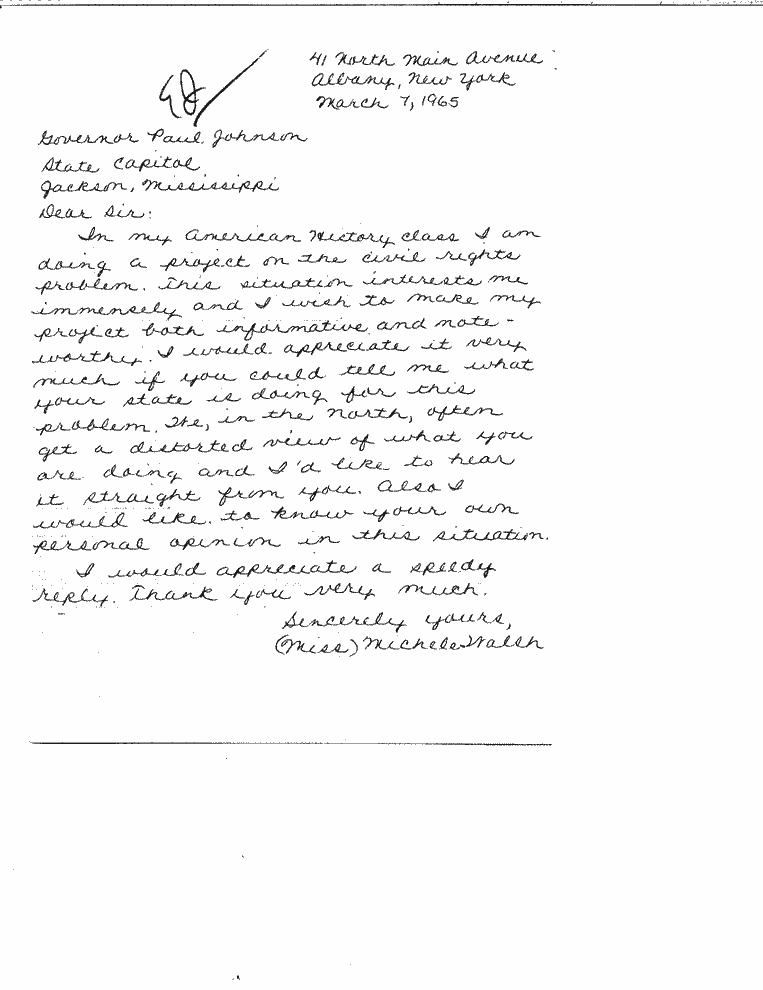 41 North Main Avenue
Albany, New York
March 7, 1965
Governor Paul Johnson
State Capitol
Jackson, Mississippi
Dear Sir:
In my American History class I am
doing a project on the civil rights
problem. This situation interests me
immensely and I wish to make my
project both informative and note-
worthy. I would appreciate it very
much if you could tell me what
your state is doing for this
problem. We, in the North, often
get a distorted view of what you
are doing and I'd like to hear
it straight from you. Also I
would like to know your own
personal opinion in this situation.
I would appreciate a speedy
reply. Thank you very much.
Sincerely yours,
(Miss) Michele Walsh